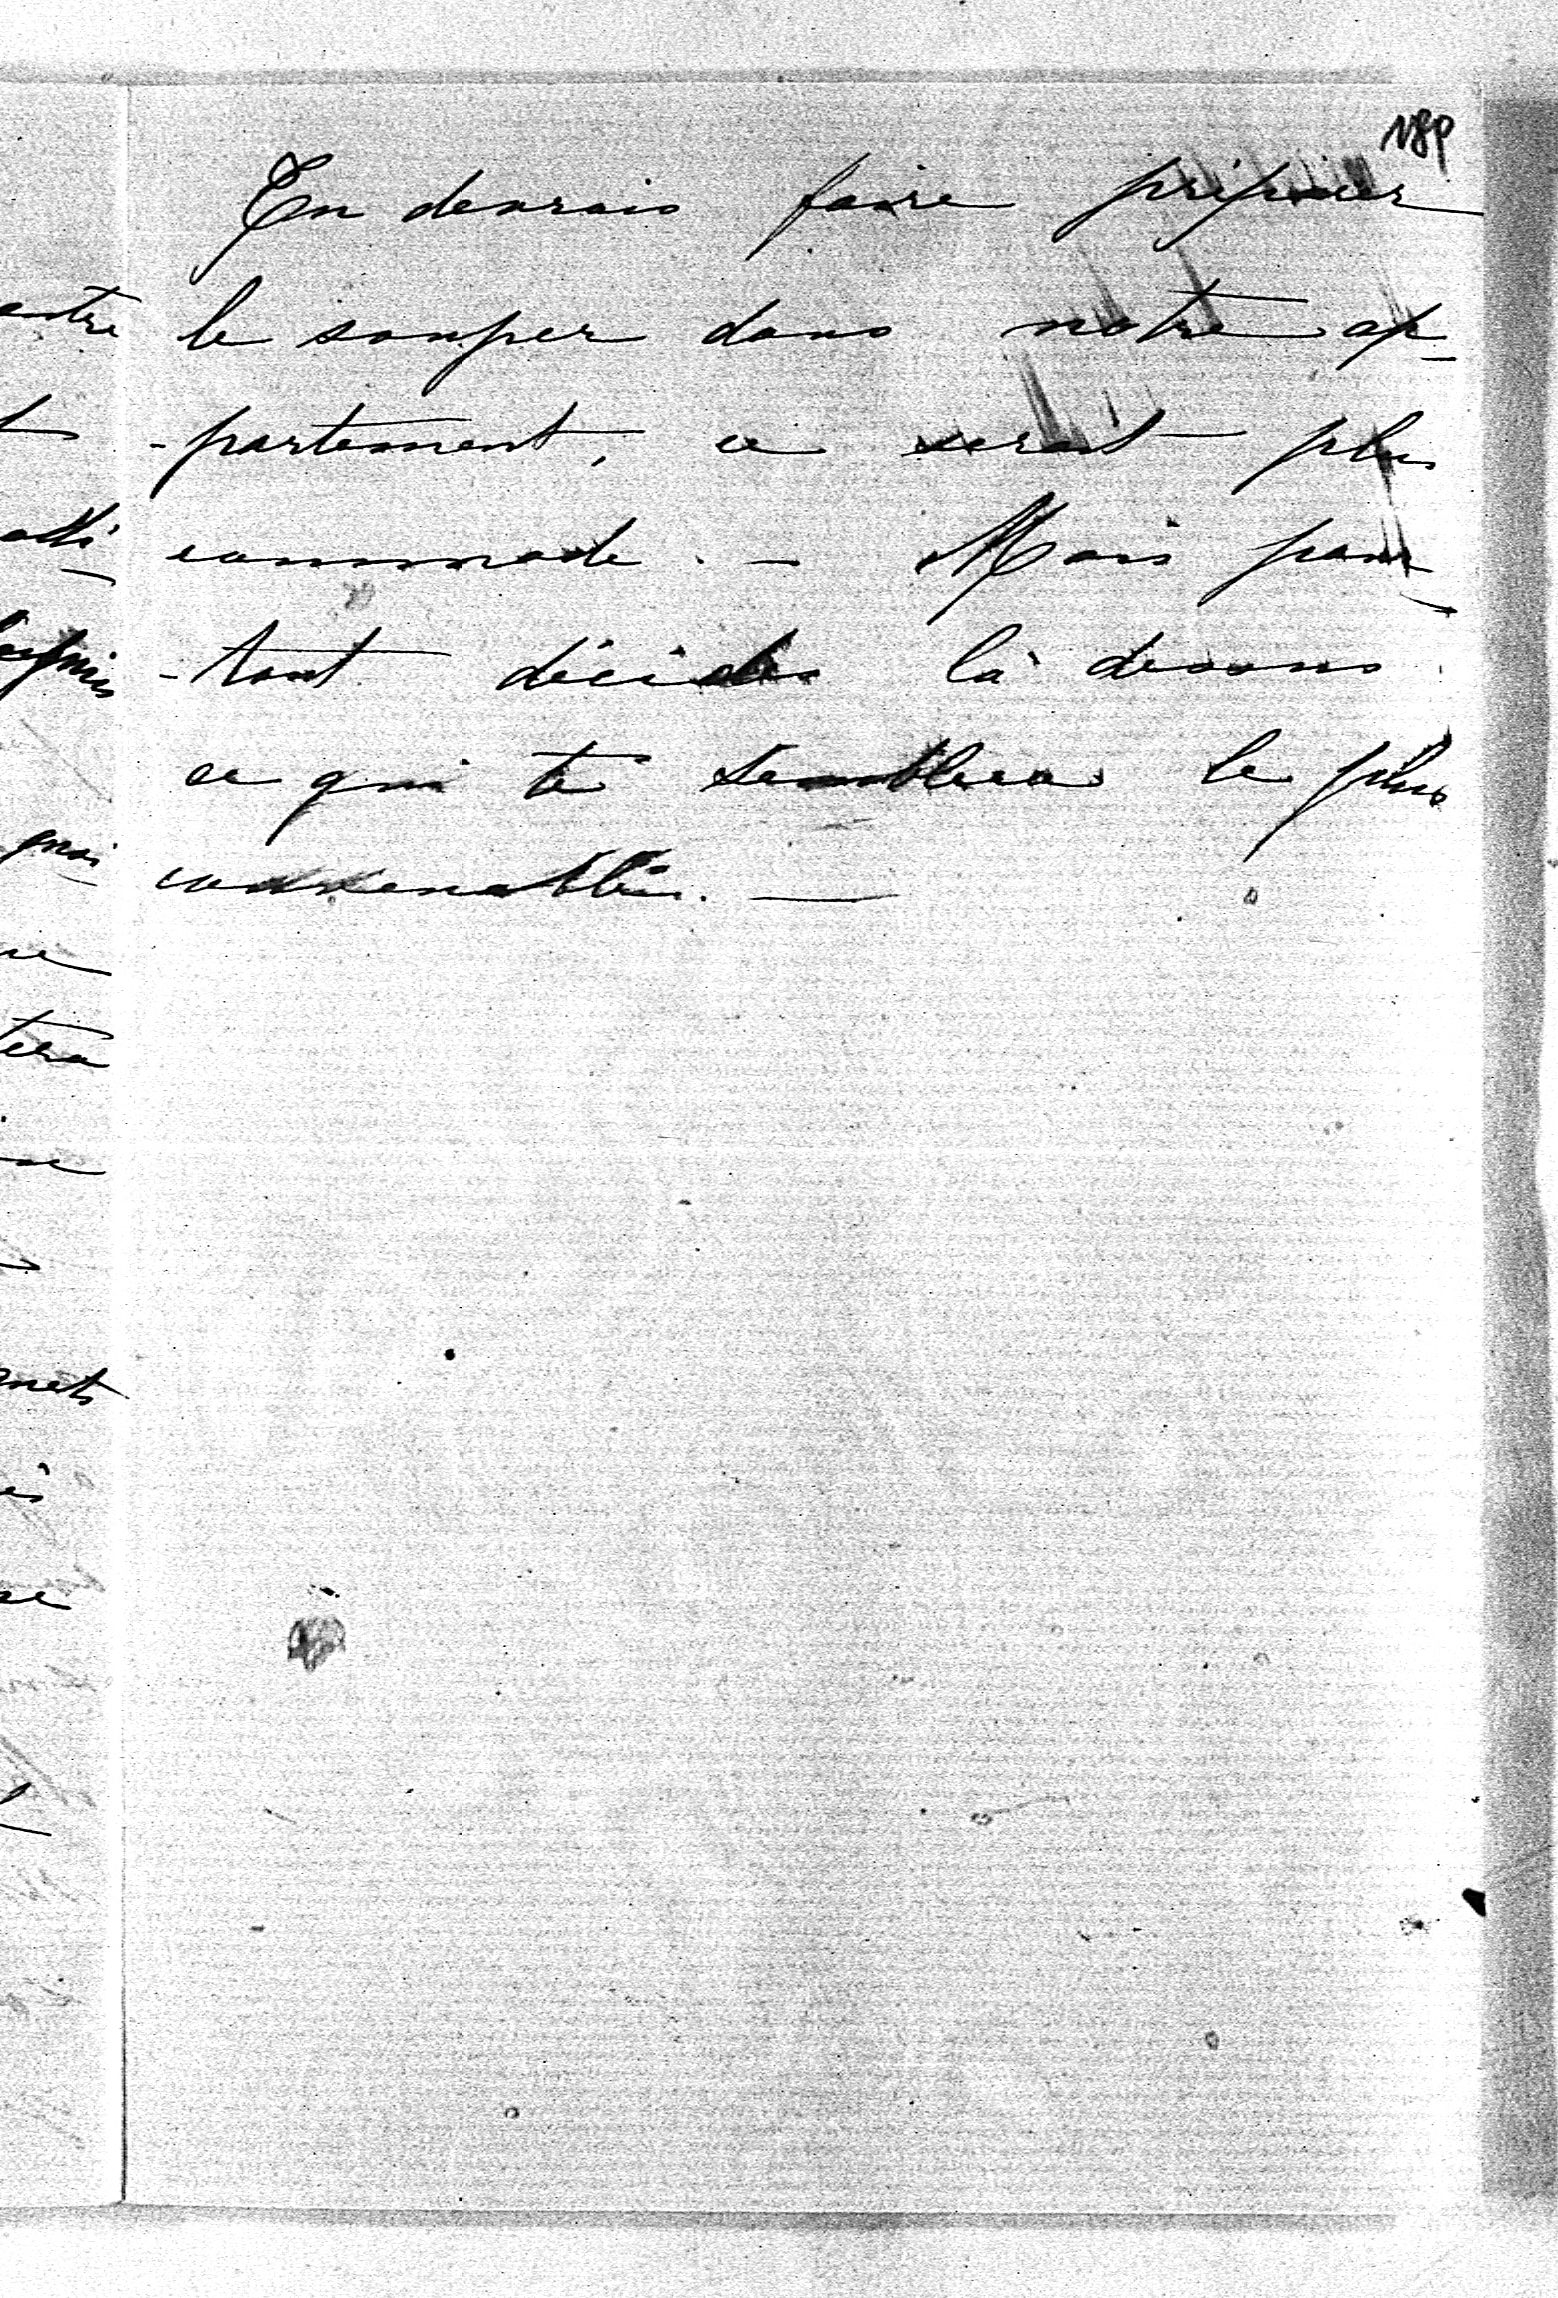 189
Tu devrais faire préparer
le souper dans notre ap-
-partement, ce serait plus
commode. - Mais pour-
-tant décides là dessus
ce qui te semblera le plus
convenable. —
entre
quoi